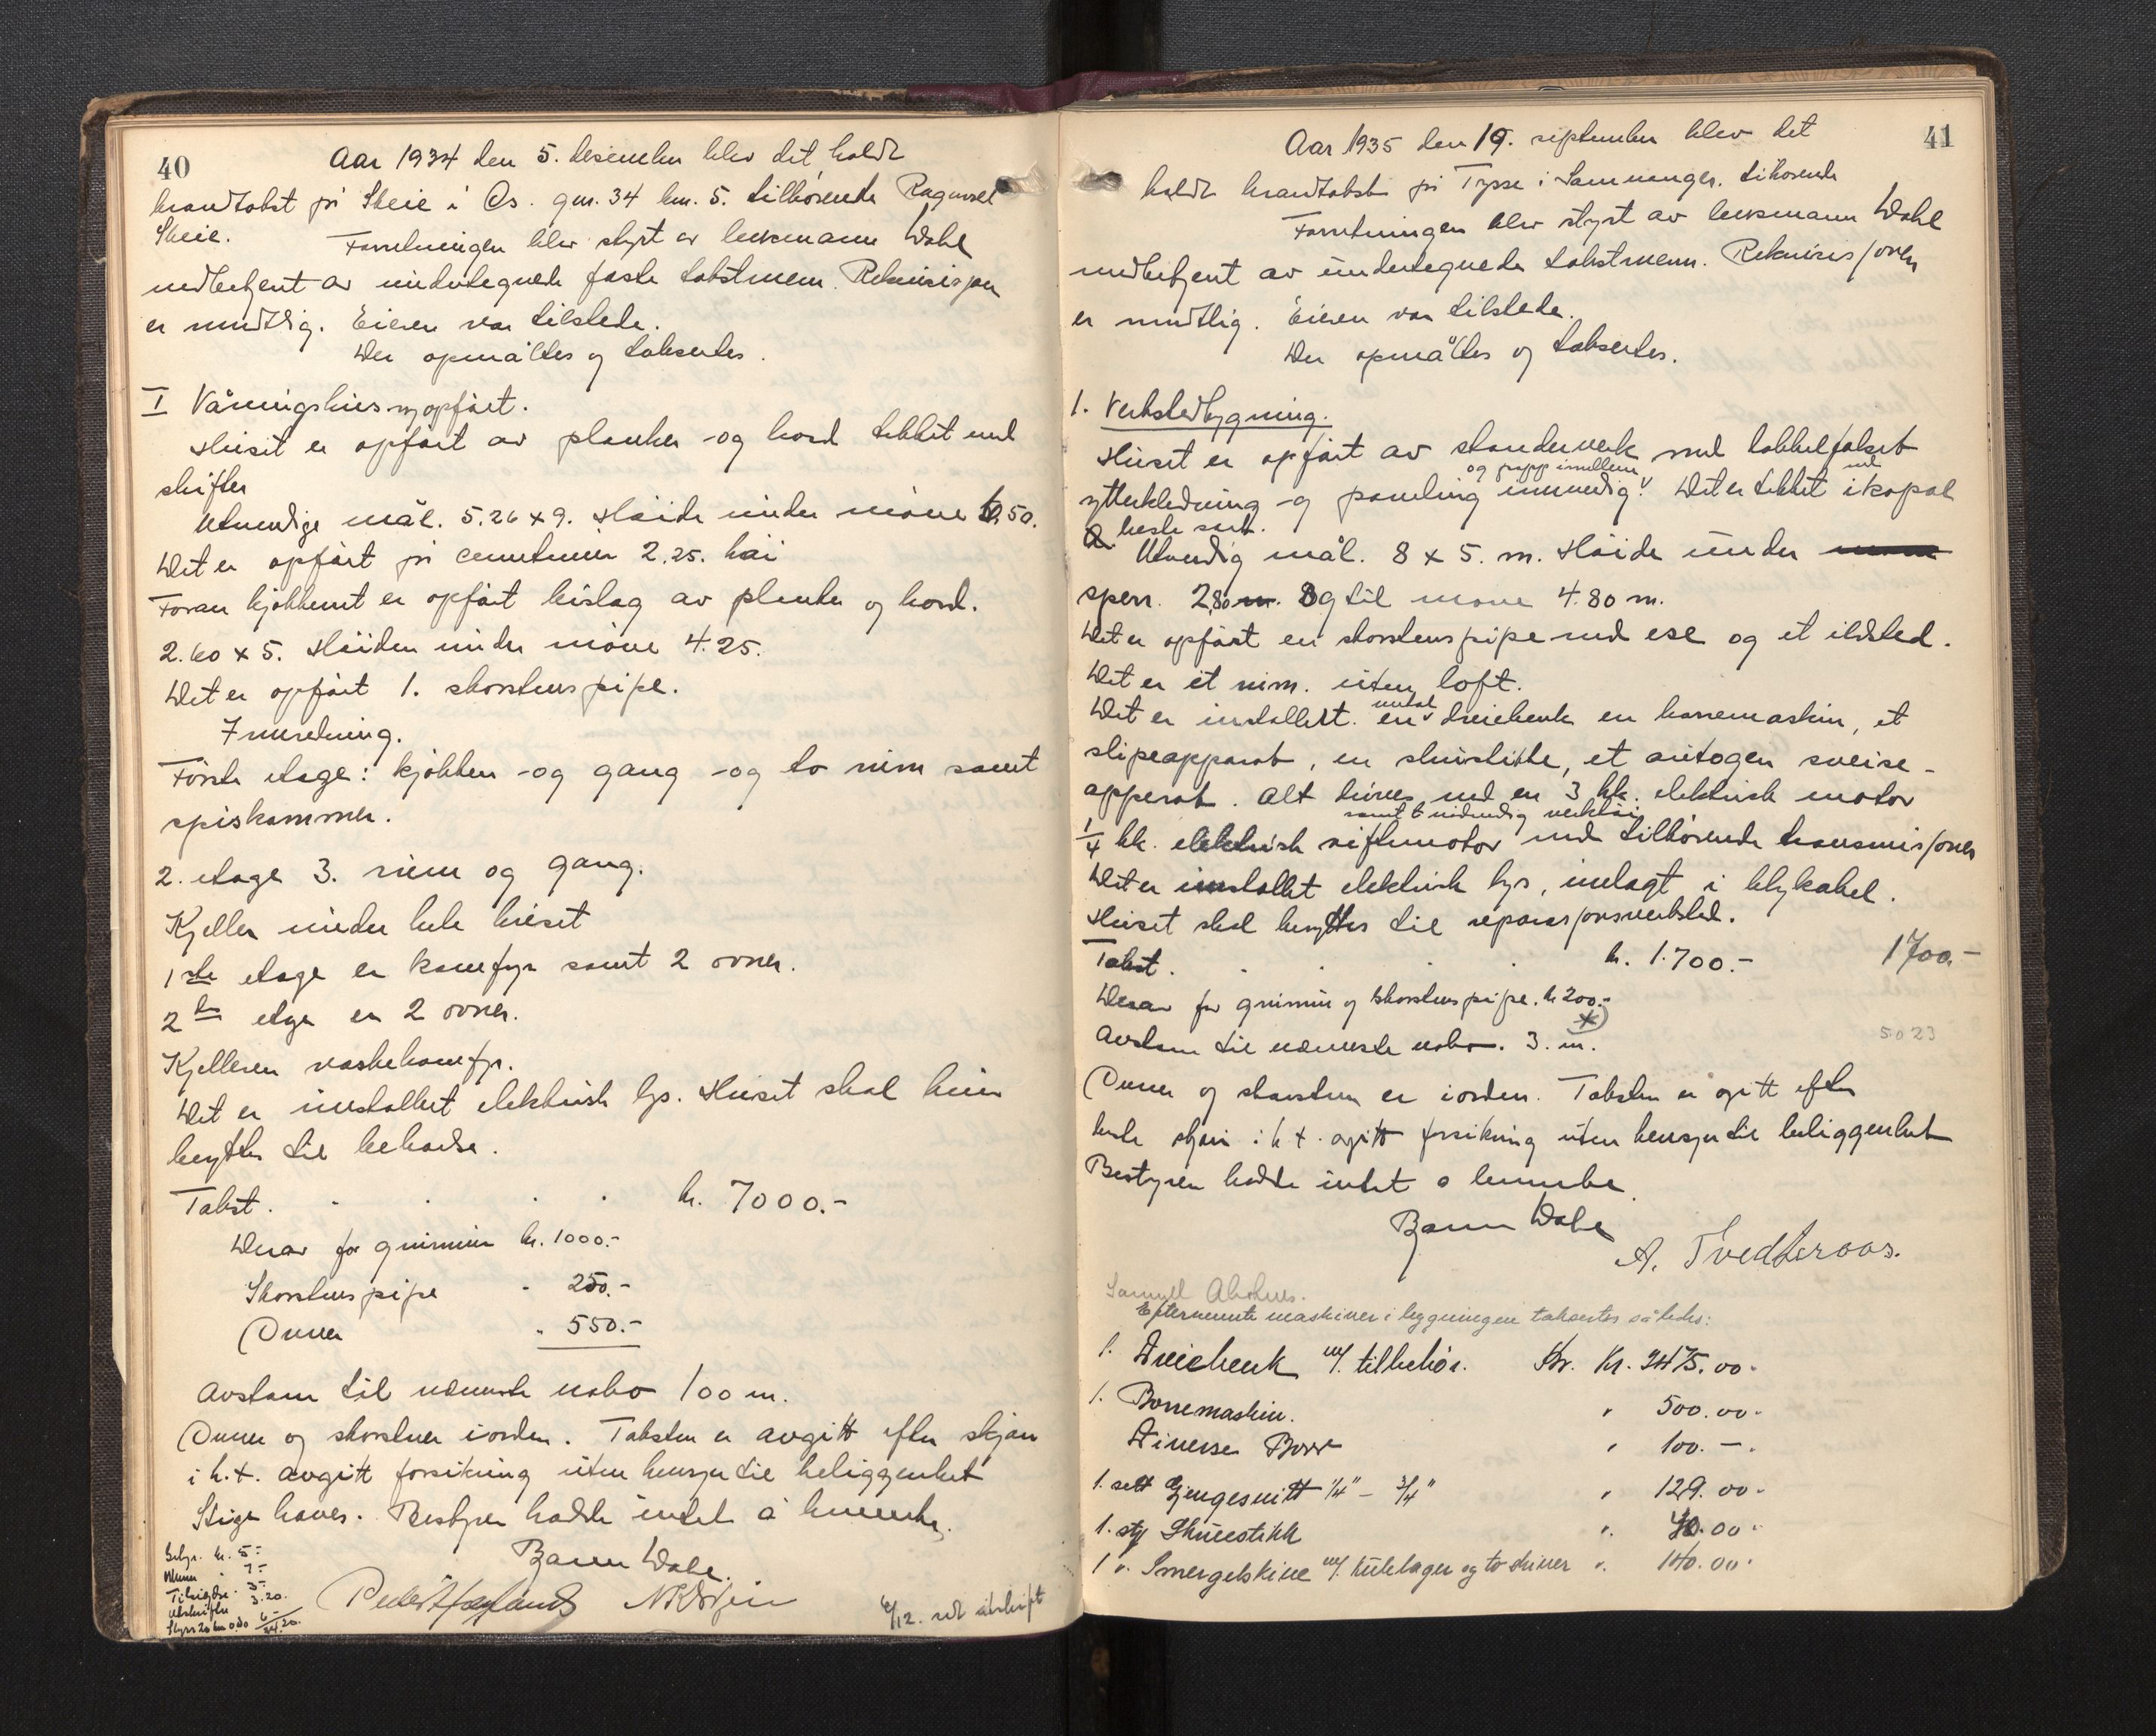 40
Aar 1934 den 5. desember blev det holdt
brandtakst på Skeie i Os. gnr. 34 bnr. 5. tilhørende Ragnvel
Skeie. Forretningen blev styrt av lensmann Dahl
medbetjent av undertegnede faste takstmenn. Rekvisisjon
er mundtlig. Eieren var tilstede.
Der opmåltes og taksertes.
I Våningshus nyopført.
Huset er opført av planker og bord tekket med
skifter
Utvendige mål. 5.26 x 9. Høide under møne 6.50.
Det er opført på cementmur 2.25. høi
Foran kjøkkenet er opført bislag av planker og bord.
2.60 x 5. Høiden under møne 4.25.
Det er opført 1. skorstenspipe.
Innredning.
Første etage: kjøkken og gang og to rum samt
spiskammer.
2. etage 3. rum og gang.
Kjeller under hele huset
1ste etage er komfyr samt 2 ovner.
2n etge er 2 ovner.
Kjelleren vaskekomfyr.
Det er installert elektrisk lys. Huset skal kun
benyttes til beboelse.
Takst. . . . . kr. 7000.-
Derav for grunmur kr. 1000.-
Skorstenspipe " 250.-
Ovner " 550.-
Avstann til nærmeste nabo 100 m.
Ovner og skorstner iorden. Taksten er avgitt efter skjøn
i h.t. avgitt forsikring uten hensyn til beliggenhet
Stige haves. Bestyrer hadde intet å bemerke.
Bjarne Dahl.
6/12. sdt utskrift
41
Aar 1935 den 19. september blev det
holdt brandtakst på Tysse i Samnanger. tilhørende
Forretningen blev styrt av lensmann Dahl
medbetjent av undertegnede takstmenn. Rekvisisjonen
er mundtlig. Eieren var tilstede.
Der opmåltes og taksertes.
1. Verkstedbygning.
Huset er opført av stenderverk med dobbelfalset
og papp imellem
ytterkledning og paneling innvendig. Det er tekket med ikopal
a. beste sort.
Utvendig mål. 8 x 5. m. Høide under
sperr. 2,80 m. Og til møne 4.80 m.
Det er opført en skorstenspipe med ese og et ildsted.
Det er et rum. uten loft.
Det er installert. en metal dreiebenk en borremaskin, et
slipeapparat, en skrustikke, et autogen sveise-
apperat. Alt drives med en 3 hk. elektrisk motor
samt nødvendig verktøi
1/4 hk. elektrisk viftemotor med tilhørende transmisjoner
Det er installet elektrisk lys, innlagt i blykabel.
Huset skal benyttes til reparasjonsverksted.
Takst. . . . kr. 1.700.- 1700.-
Derav for grunmur og skorstenspipe. kr 200.-
Avstann til nærmeste nabo. 3. m.
5023
Ovner og skorsten er iorden. Taksten er avgitt efter
beste skjøn i h.t. avgitt forsikring uten hensyn til beliggenhet
Bestyrer hadde intet å bemerke.
Bjarne Dahl
A. Tvedteraas.
Samuel
Efternevnte maskiner i bygningen taksertes således:
1. Dreiebenk m/. tilbehør. Kr. 2475.00.
1. Borremaskin. " 500.00.
Diverse Borr " 100.-.
1. sett Gjengesnitt 1/4" - 3/4" " 129.00.
1. stg Skruestikk " 40.00.
1 ". Smergelskive m/. kulelager og to skiver ". 140.00.